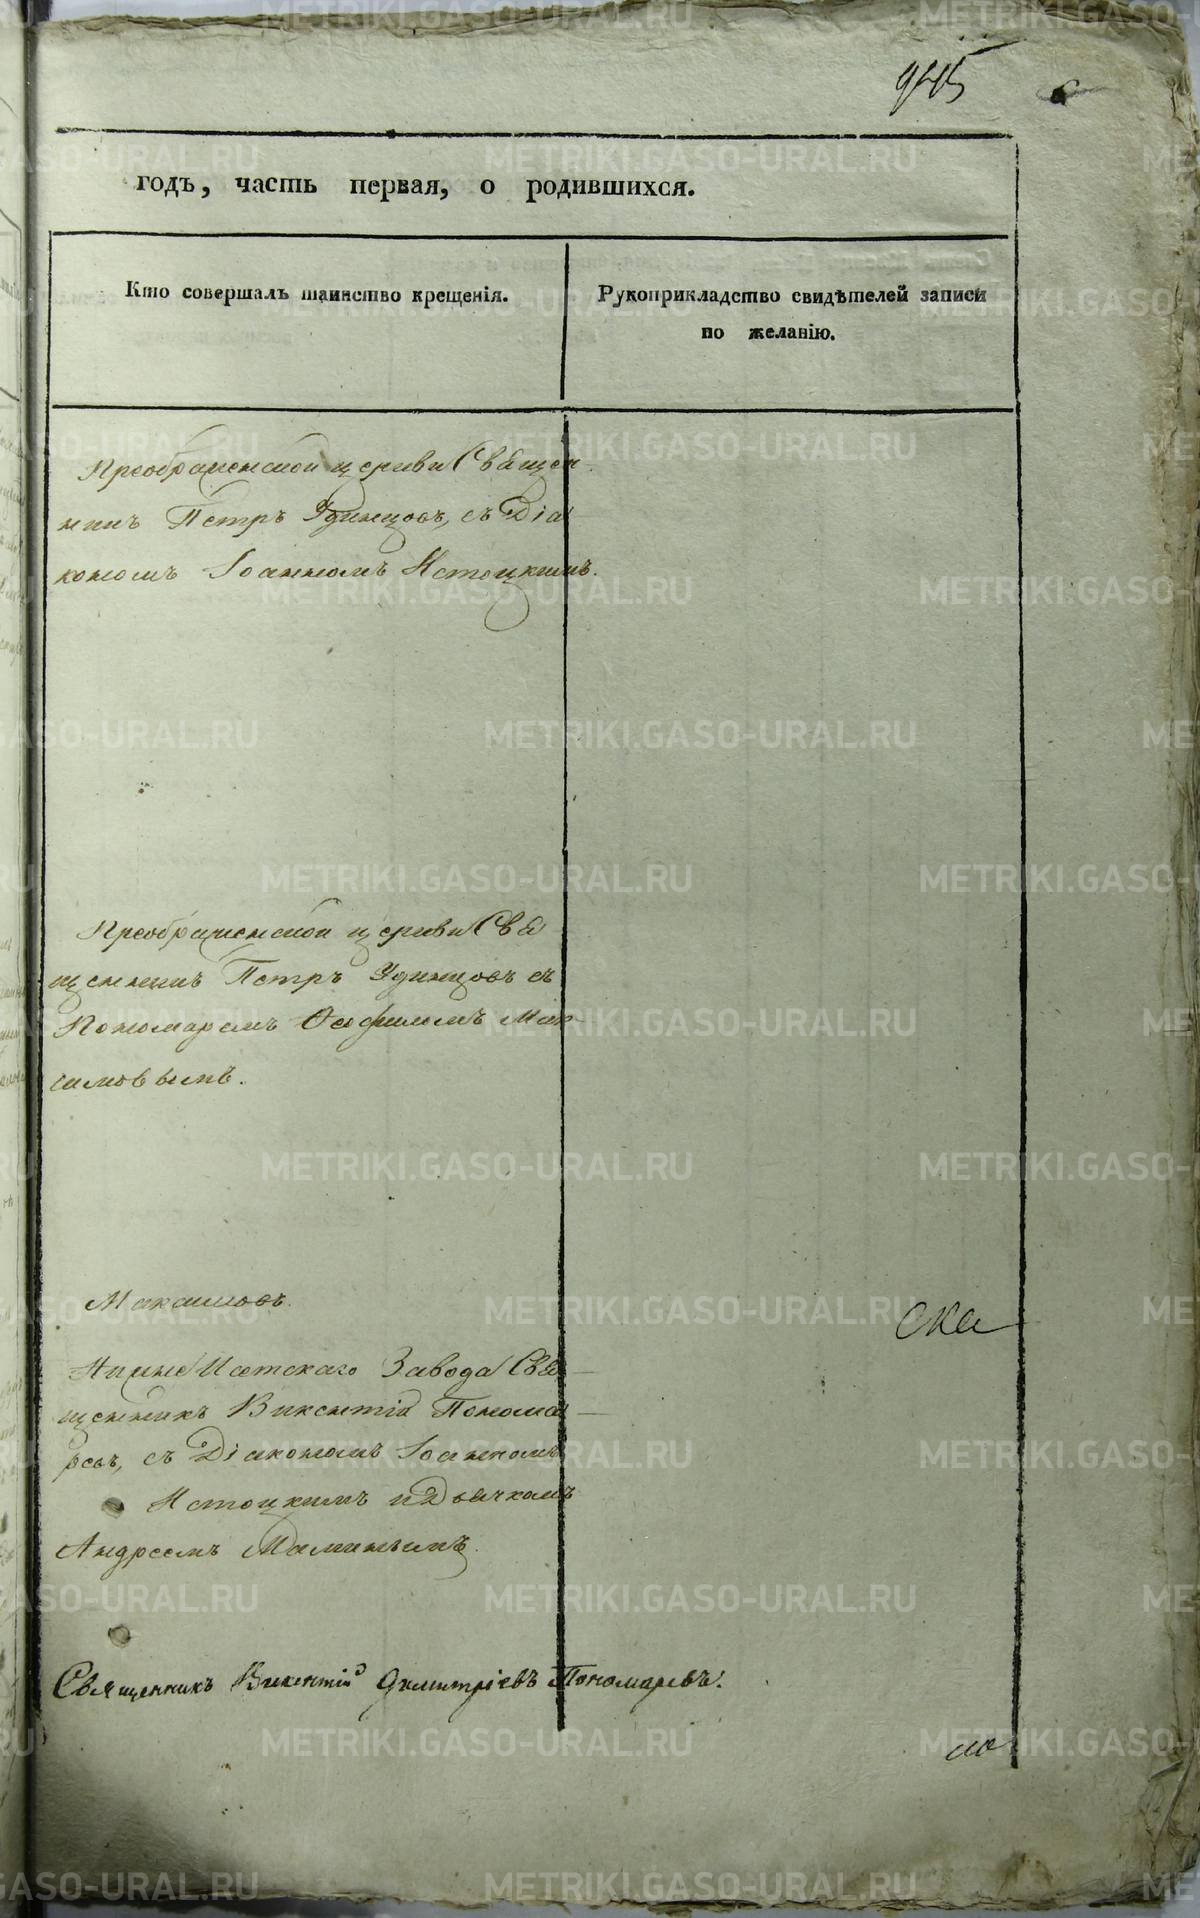 945
годъ, часть первая, о родившихся.
Кто совершалъ таинство крещенія.
Рукоприкладство свидѣтелей записи
по желанію.
Преображенской церкви Священ-
никъ Петръ Удинцовъ, съ Діа
кономъ Іоанномъ Истоцкимъ.
Преображенской церкви Свя
щенникъ Петръ Удинцовъ съ
Пономаремъ Ѳеофиломъ Мак-
симовымъ.
Максимовъ.
Исетскаго Завода Свя
щенникъ Викентій Понома
ревъ, съ Діакономъ Іоанномъ
Истоцкимъ и Дьячкомъ
Андреемъ Маминымъ.
Священникъ Викентій Димитріевъ Пономаревъ.
METRIKI.GASO-URAL.RU